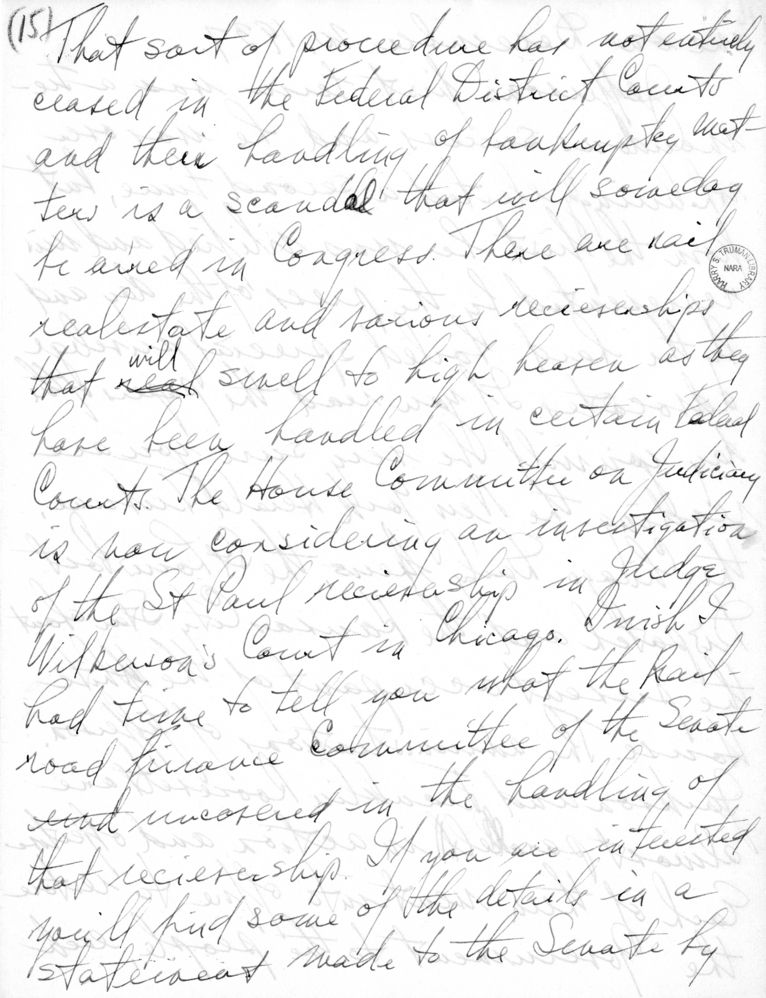 (15) That sort of procedure has not entirely
ceased in the Federal District Courts
and their handling of bankruptcy mat-
ters is a scandal that will someday
be aired in Congress. There are rail
HARRY S. TRUMAN LIBRARY
NARA
realestate and various recieverships
will
that smell to high heaven as they
have been handled in certain Federal
Courts. The House Committee on Judiciary
is now considering an investigation
of the St Paul recievership in Judge
Wilkerson's Court in Chicago. I wish I
had time to tell you what the Rail-
road finance Committee of the Senate
uncovered in the handling of
that recievership. If you are interested
you'll find some of the details in a
statement made to the Senate by